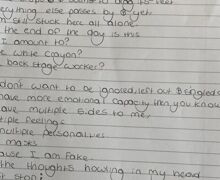 everything else passes by & yet
I'm still stuck here all alone.
the end of the day is this
I amount to?
e white crayon?
back stage worker?
don't want to be ignored, left out & singled
have more emotional capacity then you know
have multiple sides to me,
tiple feelings
multiple personalities
masks
ause I am Fake.
the thoughts howling in my head